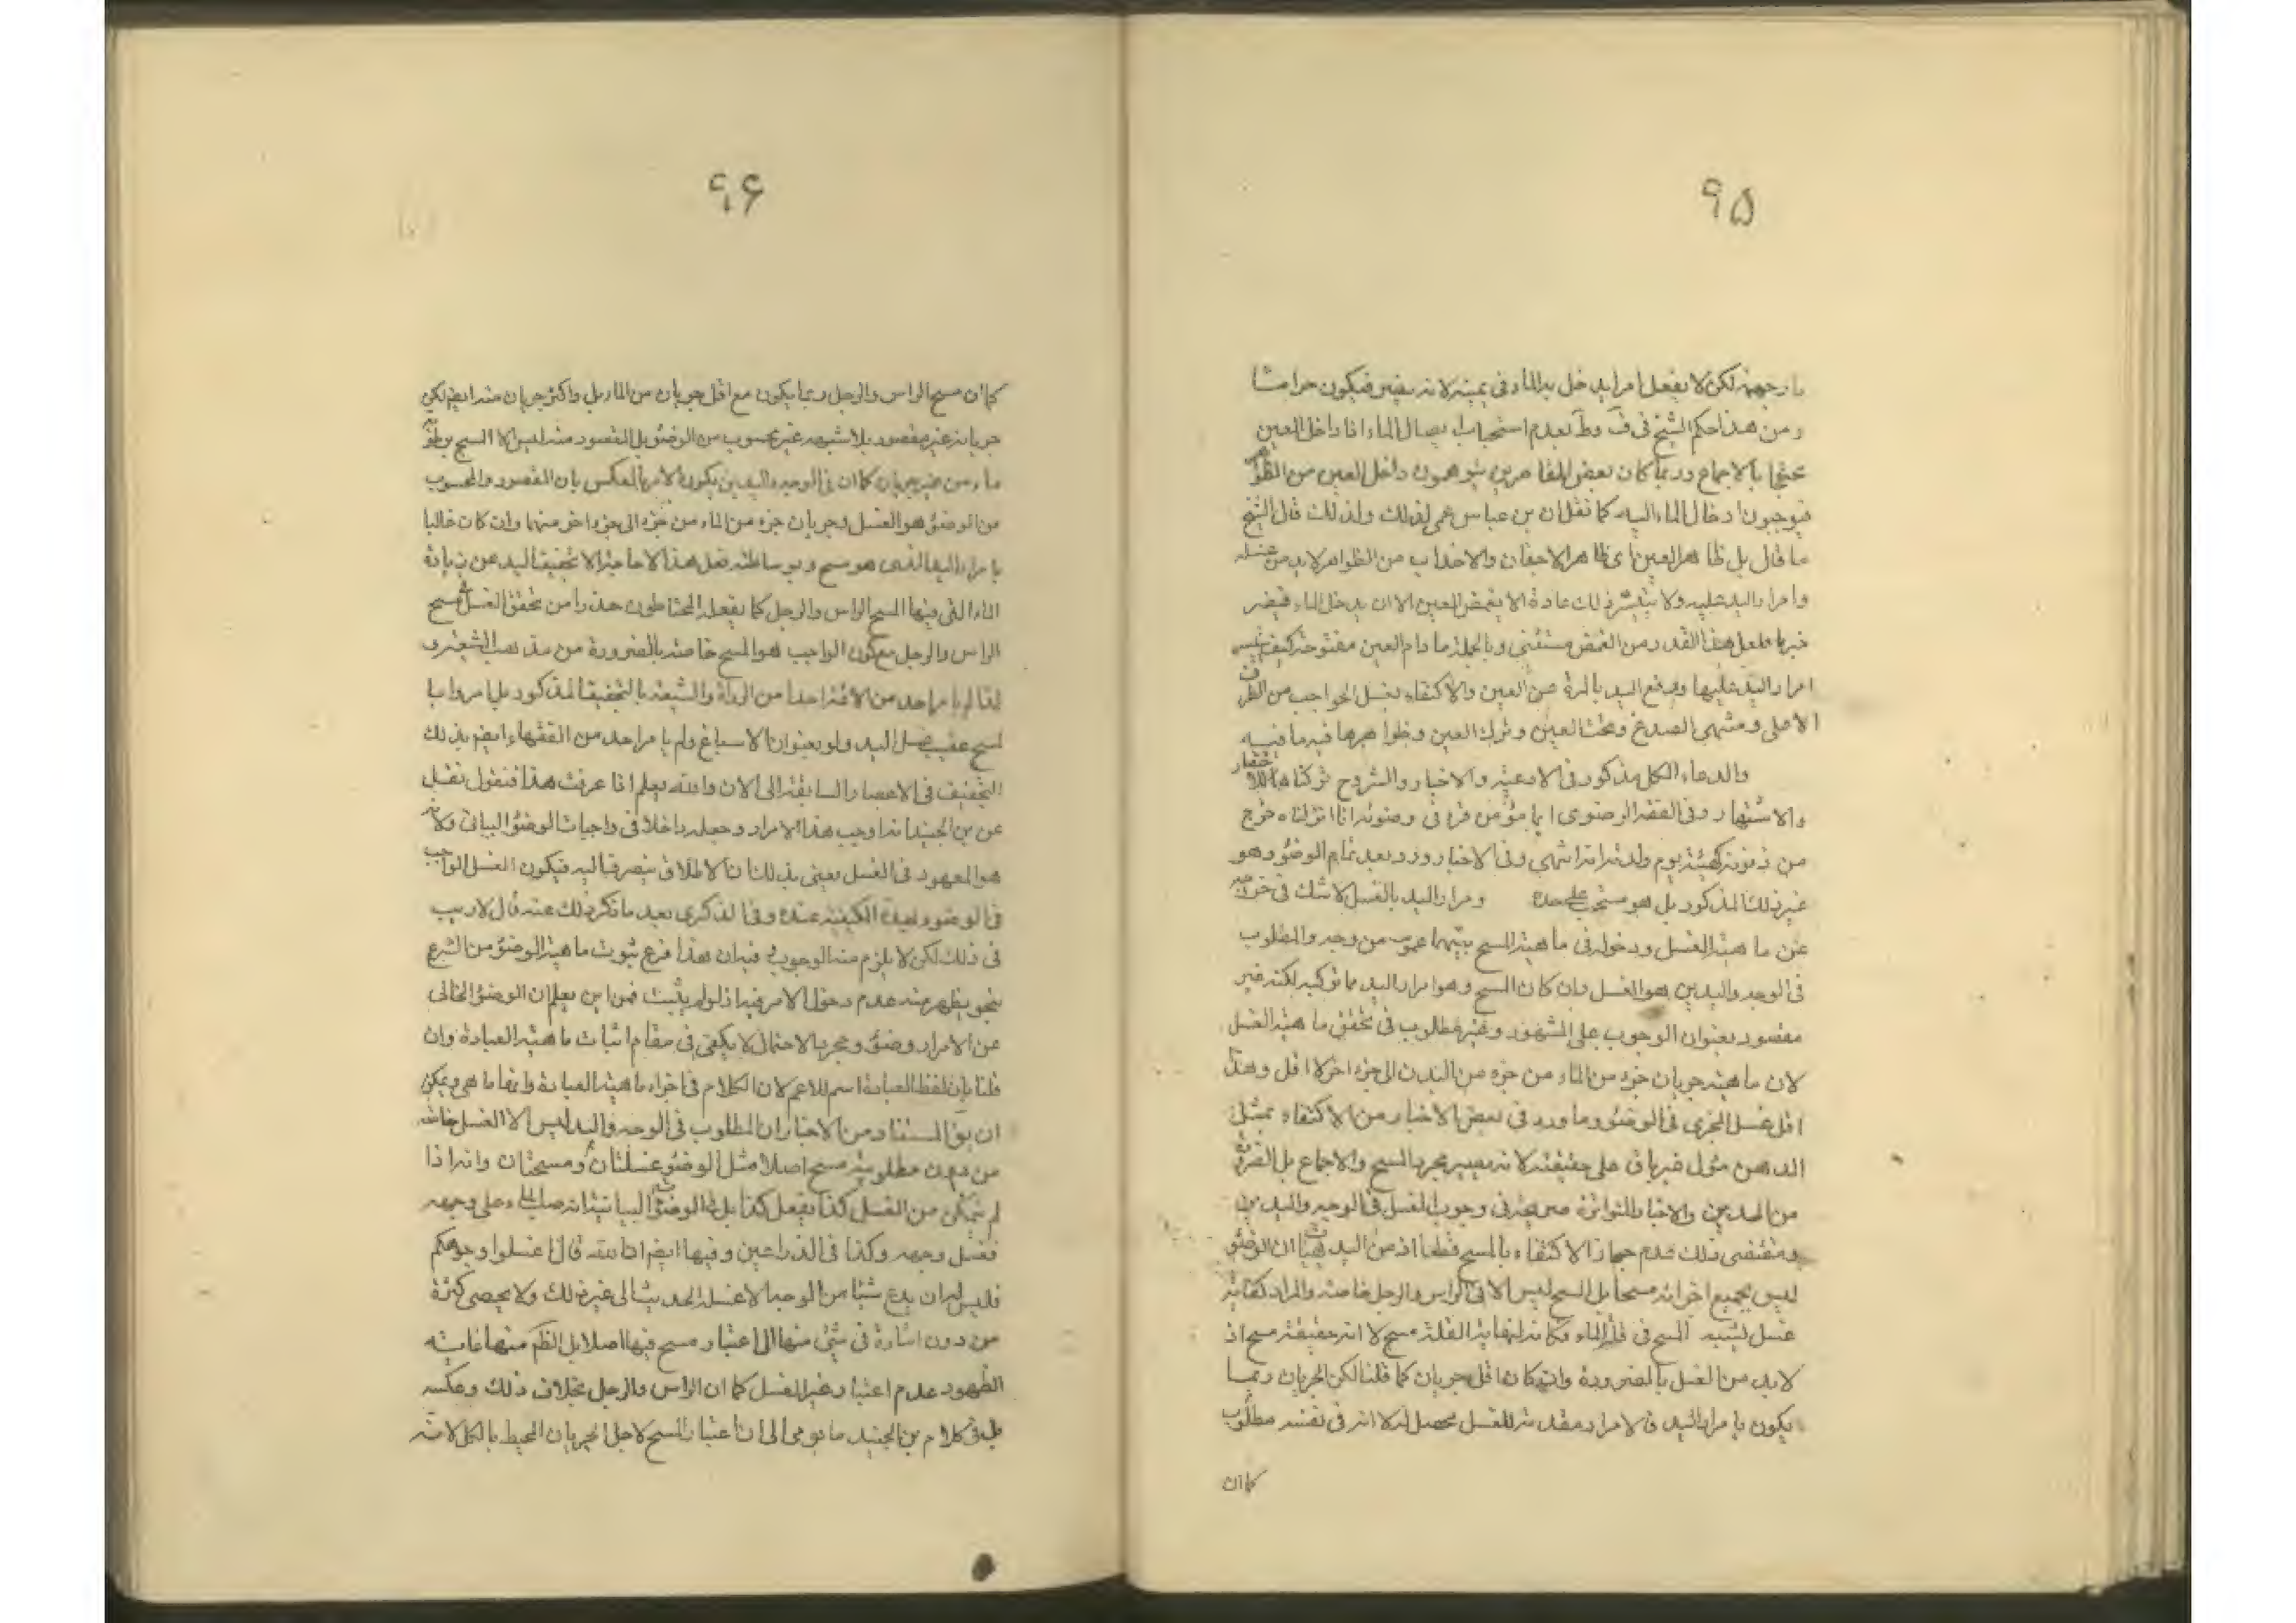 ٩۵
لكن لا يفعل امرا يدخل به الماء فى عينه لانه يضر فيكون حراما
و من هذا حكم الشيخ فى ف و ط بعدم استحباب ايصال الماء اذا داخل العين
محتجا بالاجماع و ربما كان بعض القاصرين يتوهمون داخل العين من الظواهر
فيوجبون ادخال الماء اليه كما نقل ان بن عباس عمى لذلك ولذلك قال الشيخ
ما قال بل ظاهر العين اى ظاهر الاجفان والاهداب من الظواهر لابد من غسله
وامرار اليد عليه ولا يتيسر ذلك عادة الا بغمض العين الا ان يدخل الماء فيضر
فلعل هذا القدر من الغمض مستثنى وبالجملة ما دام العين مفتوحة كيف يتيسر
امرار اليد عليها ورفع اليد بالمرة عن العين والاكتفاء بغسل الحواجب من الطرف
الاعلى ومنتهى الصدغ وتحت العين وترك العين وظواهرها فيه ما فيه
والدعاء الكل مذكور فى الادعية والاخبار والشروح تركناها للاختصار
والاشتهار وفى الفقه الرضوى ايما مؤمن قرء فى وضوئه انا انزلناه خرج
من ذنوبه كهيئة يوم ولدته امه انتهى وفى الاخبار ورد بعد تمام الوضوء وهو
غير ذلك المذكور بل هو مستحب عليحدة وامرار اليد بالغسل لا شك فى خروجه
عن ماهية الغسل ودخوله فى ماهية المسح بينهما عموم من وجه والمطلوب
فى الوجه واليدين هو الغسل وان كان المسح وهو امرار اليد مما توكيد لكنه غير
مقصود بعنوان الوجوب على المشهور وغير مطلوب فى تحقق ماهية الغسل
لان ماهيته جريان جزء من الماء من جزء من البدن الى جزء اخر لا اقل وهذا
اقل غسل المجزى فى الوضوء وما ورد فى بعض الاخبار من الاكتفاء بمثل
الدهن مئول غير باق على حقيقته لانه يصير مجرد المسح والاجماع بل الضرورة
من الدين والاخبار المتواترة صريحة فى وجوب الغسل فى الوجه واليدين
ومقتضى ذلك عدم جواز الاكتفاء بالمسح قطعا اذ من البديهيات ان الوضوء
ليس بجميع اجزائه مسحا بل المسح ليس الا فى الراس والرجل خاصة والمراد كفاية
غسل يشبه المسح فى قلة الماء فكانه لنهاية القلة مسح لا انه حقيقة مسح اذ
لابد من الغسل بالضرورة وان كان اقل جريان كما قلنا لكن الجريان ربما
يكون بامرار اليد فالامرار مقدمة للغسل محصل له لا انه فى نفسه مطلوب
كما ان
٩۶
كما ان مسح الراس والرجل ربما يكون مع اقل جريان من الماء بل واكثر جريان منه ايضم لكن
جريانه غير مقصود بلا شبهه غير محسوب من الوضوء بل المقصود منه ليس الا المسح برطوبة
ماء من غير جريان كما ان فى الوجه واليدين يكون الامر بالعكس بان المقصود والمحسوب
من الوضوء هو الغسل وجريان جزء من الماء من جزء الى جزء اخر منهما وان كان غالبا
بامرار اليد الذى هو مسح وبوساطته فعل هذا لا حاجة الا تخفيف اليد عن زيادة
الماء التى فيها المسح الراس والرجل كما يفعله المحتاطون حذرا من تحقق الغسل فى مسح
الراس والرجل مع كون الواجب هو المسح خاصة بالضرورة من مذهب الشيعة و
لذا لم يامر احد من الائمة احدا من الرواة والشيعة بالتخفيف المذكور بل امروا با
لمسح عقيب غسل اليد ولو بعنوان الاسباغ ولم يامر احد من الفقهاء ايضم بذلك
التخفيف فى الاعصار السابقة الى الان والله يعلم اذا عرفت هذا فنقول نقل
عن بن الجنيد انه اوجب هذا الامرار وجعله داخلا فى واجبات الوضوء البيانى ولانه
هو المعهود فى الغسل يعنى بذلك ان الاطلاق ينصرف اليه فيكون الغسل الواجب
فى الوضوء بهذه الكيفية عنده وفى الذكرى بعد ما ذكر ذلك عنه قال لا ريب
فى ذلك لكن لا يلزم منه الوجوب فيه ان هذا فرع ثبوت ماهية الوضوء من الشرع
بنحو يظهر منه عدم دخول الامر فيه اذ لو لم يثبت فمن اين يعلم ان الوضوء الخالى
عن الامرار وضوء ومجرد الاحتمال لا يكفى فى مقام اثبات ماهية العبادة وان
قلنا بان لفظ العبادة اسم للاعم لان الكلام فى اجزاء ماهية العبادة وانها ما هى ويمكن
ان يق المستفاد من الاخبار ان المطلوب فى الوجه واليد ليس الا الغسل خاصة
من دون مطلوبية مسح اصلا مثل الوضوء غسلتان ومسحتان وانه اذا
لم يتمكن من الغسل كذا يفعل كذا بل فى الوضوء البيانية انه صب الماء على وجهه
فغسل وجهه وكذا فى الذراعين وفيها ايضم ان الله قال اغسلوا وجوهكم
فليس له ان يدع شيئا من الوجه الا غسله الحديث الى غير ذلك ولا يحصى كثرة
من دون اشارة فى شئ منها الى اعتبار مسح فيها اصلا بل الظم منها غاية
الظهور عدم اعتبار غير الغسل كما ان الراس والرجل بخلاف ذلك وعكسه
بل فى كلام بن الجنيد ما يومى الى ان اعتبار المسح لاجل الجريان المحيط بالكل لانه